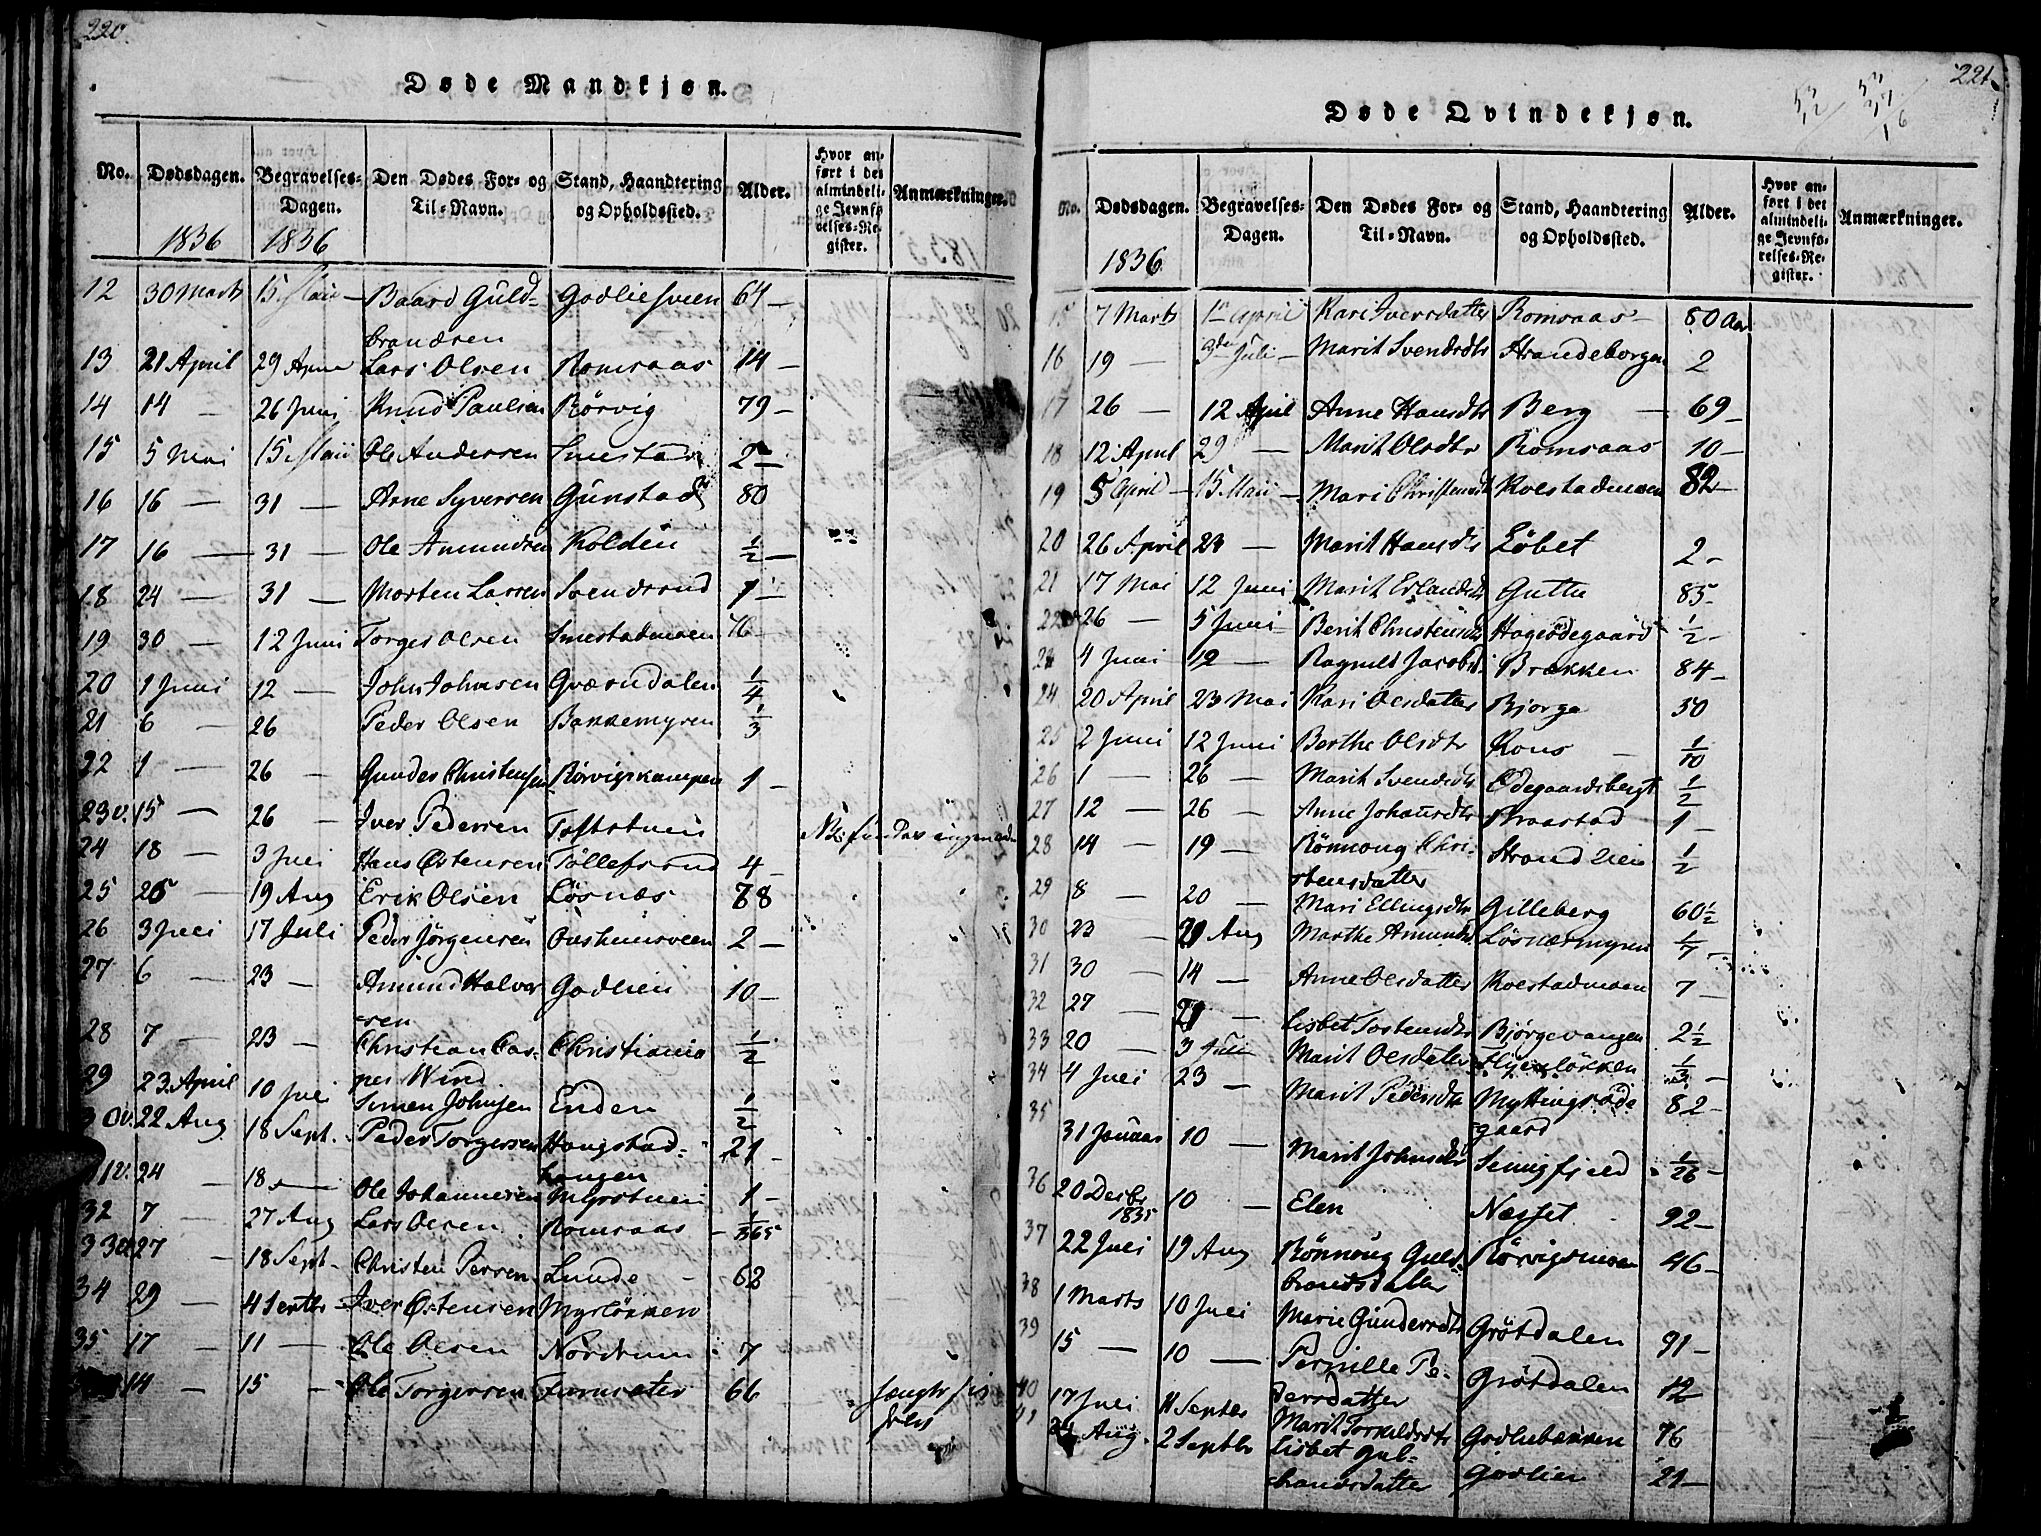 220.
Døde Mandkjøn.
No. Dødsdagen. Begravelses-Dagen. Den Dødes For- og Til-Navn. Stand, Haandtering og Opholdssted. Alder. Hvor anført i det almindelige Jevnførelses-Register. Anmærkninger.
1836 1836
12 30 Marts 15 Maii Baard Guld- Godliesveen 64 –
brandsen
13 21 April 29 April Lars Olsen Romsaas 14 –
14 14 – 26 Juni Knud Paulsen Rörvig 79 –
15 5 Mai 15 Maii Ole Andersen Smestad 2 –
16 16 – 31 – Arne Syversen Gunstad 80
17 16 – 31 – Ole Amundsen Kolden ½ –
18 24 – 31 – Morten Larsen Svendsrud 1 –
19 30 – 12 Juni Torger Olsen Smestadmoen
20 1 Juni 12 – John Johnsen Qværndalen ¼
21 6 26 Peder Olsen Bakkemyren ⅓
22 1 – 26 – Gunder Christensen Rörvigskampen 1 –
23 15 – 26 – Iver Pedersen Toftstuen
24 18 – 3 Juli Hans Østensen Tollefsrud 4 –
25 26 – 19 Aug Erik Olsen Løsnæs 78
26 3 Juli 17 Juli Peder Jörgensen 2 –
27 6 – 23 – Amund Halvor Godlien 10 –
sen
28 7 – 23 – Christian Cas- Christiania ½
per Wind
29 23 April 10 Juli Simen Johnsen Enden ½
30 22 Aug 18 Sept. Peder Torgersen Haugstad- 21 –
haugen
24 – 18 – Ole Johannesen Myrstuen 1 –
32 7 – 27 Aug Lars Olsen Romsaas – 1/365
33 27 – 18 Sept. Christen Persen Lunde – 62
34 29 – 4 Septbr Iver Østensen Myrlökken
35 17 – 11 – Ole Olsen Nordrum 7
14 – 15 – Ole Torgersen Furusæter 66
221.
Døde Qvindekjøn.
No. Dødsdagen. Begravelses-Dagen. Den Dødes For- og Til-Navn. Stand, Haandtering og Opholdssted. Alder. Hvor anført i det almindelige Jevnførelses-Register. Anmærkninger.
1836
15 7 Marts 1 April Kari Iversdatter Romsaas – 80 Aar
16 19 – 3die Juli – Marit Svendsdtr Strandeborgen 2
17 26 – 12 April Anne Hansdtr Berg – 69 –
18 12 April 29 – Marit Olsdtr Romsaas 10 –
19 5 April – 15 Maii – Mari Christensdtr Kolstadmoen 82 –
20 26 April 23 – Marit Hansdtr Löbet 2 –
21 17 Mai 12 Juni Marit Erlandsdtr Gutlu 85 –
22 26 – 5 Juni – Berit Christensdtr Hageødegaard ½ –
23 4 Juni 12 – Ragnild Jacobsd. Brækken 84 –
24 20 April 23 Mai Kari Olsdatter Bjorge 30
25 2 Juni 12 Juni Berthe Olsdtr Kons – 1/10
26 1 – 26 – Marit Svendsdtr Ødegaardsberget ½
27 12 – 26 – Anne Johansdtr Praastad 1 –
28 14 – 19 – Rönnoug Chri- Strandlien ½
stensdatter
29 8 – 20 – Mari Ellingsdtr Gilleberg 60½
30 23 – 21 Aug Marthe Amundsd Løsnæsmyren 1/7 –
31 30 – 14 – Anne Olsdatter Kolstadmoen 7 –
32 27 – 21 – Lisbet Tostensdtr Bjørgevangen 2½
33 20 – 3 Juli Marit Olsdatter ⅓ –
34 4 Juli 23 – Marit Pedersdtr Myttingsøde- 82 –
gaard
35 31 Januar 10 – Marit Johnsdtr Sennigfjeld 1/26 –
36 20 Decbr 10 – Elen Næsset 92 –
1835
37 22 Juli 19 Aug Rönnoug Guld- Rörvigsmoen 46 –
brandsdatter
38 1 Marts 10 Juli Marie Gundersdtr Grötdalen 91 –
39 15 – 10 – Pernille Pe- Grötdalen 12
dersdatter
40 17 Juli 11 Septbr Marit Torkildsdtr Godliebakken 76
Aug. 2 Septbr Lisbet Gul- Godlien 21 –
brandsdatter